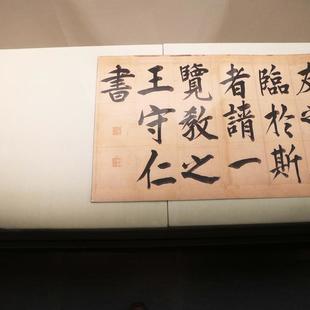 友之
臨於斯
者請一
覽教之
王守仁
書